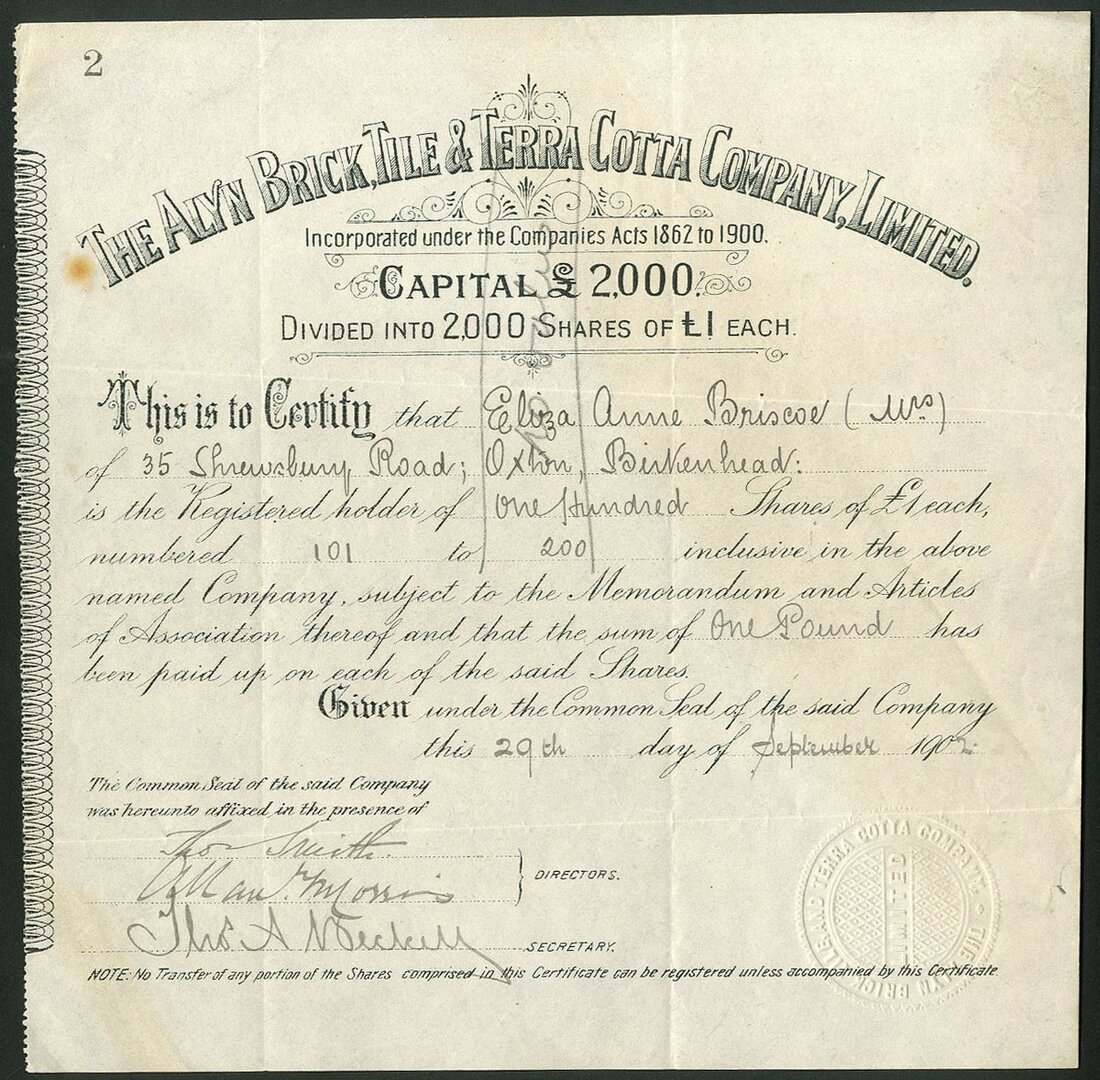 2
THE ALYN BRICK, TILE & TERRA COTTA COMPANY, LIMITED.
Incorporated under the Companies Acts 1862 to 1900.
CAPITAL £ 2,000.
DIVIDED INTO 2,000 SHARES OF £1 EACH.
This is to Certify that Eliza Anne Briscoe (Mrs)
of 35 Shrewsbury Road; Oxton, Birkenhead:
is the Registered holder of One Hundred Shares of £1 each,
numbered 101 to 200 inclusive in the above
named Company, subject to the Memorandum and Articles
of Association thereof and that the sum of One Pound has
been paid up on each of the said Shares.
Given under the Common Seal of the said Company
this 29th day of September 1902
The Common Seal of the said Company
was hereunto affixed in the presence of
Thos Smith
Morris
DIRECTORS.
Thos A
SECRETARY.
NOTE: No Transfer of any portion of the Shares comprised in this Certificate can be registered unless accompanied by this Certificate
THE ALYN BRICK TILE AND TERRA COTTA COMPANY
LIMITED